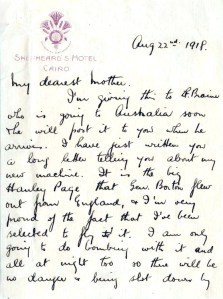 SHEPHEARD'S HOTEL
CAIRO
Aug 22nd 1918.
My dearest Mother.
I'm giving this to Braine
who is going to Australia soon
& he will post it to you when he
arrives. I have just written you
a long letter telling you about my
new machine. It is the big
Handley Page that Gen. Borton flew
out from England, & I'm very
proud of the fact that I've been
selected to fly it. I am only
going to do bombing with it and
all at night too so there will be
no danger of being shot down by